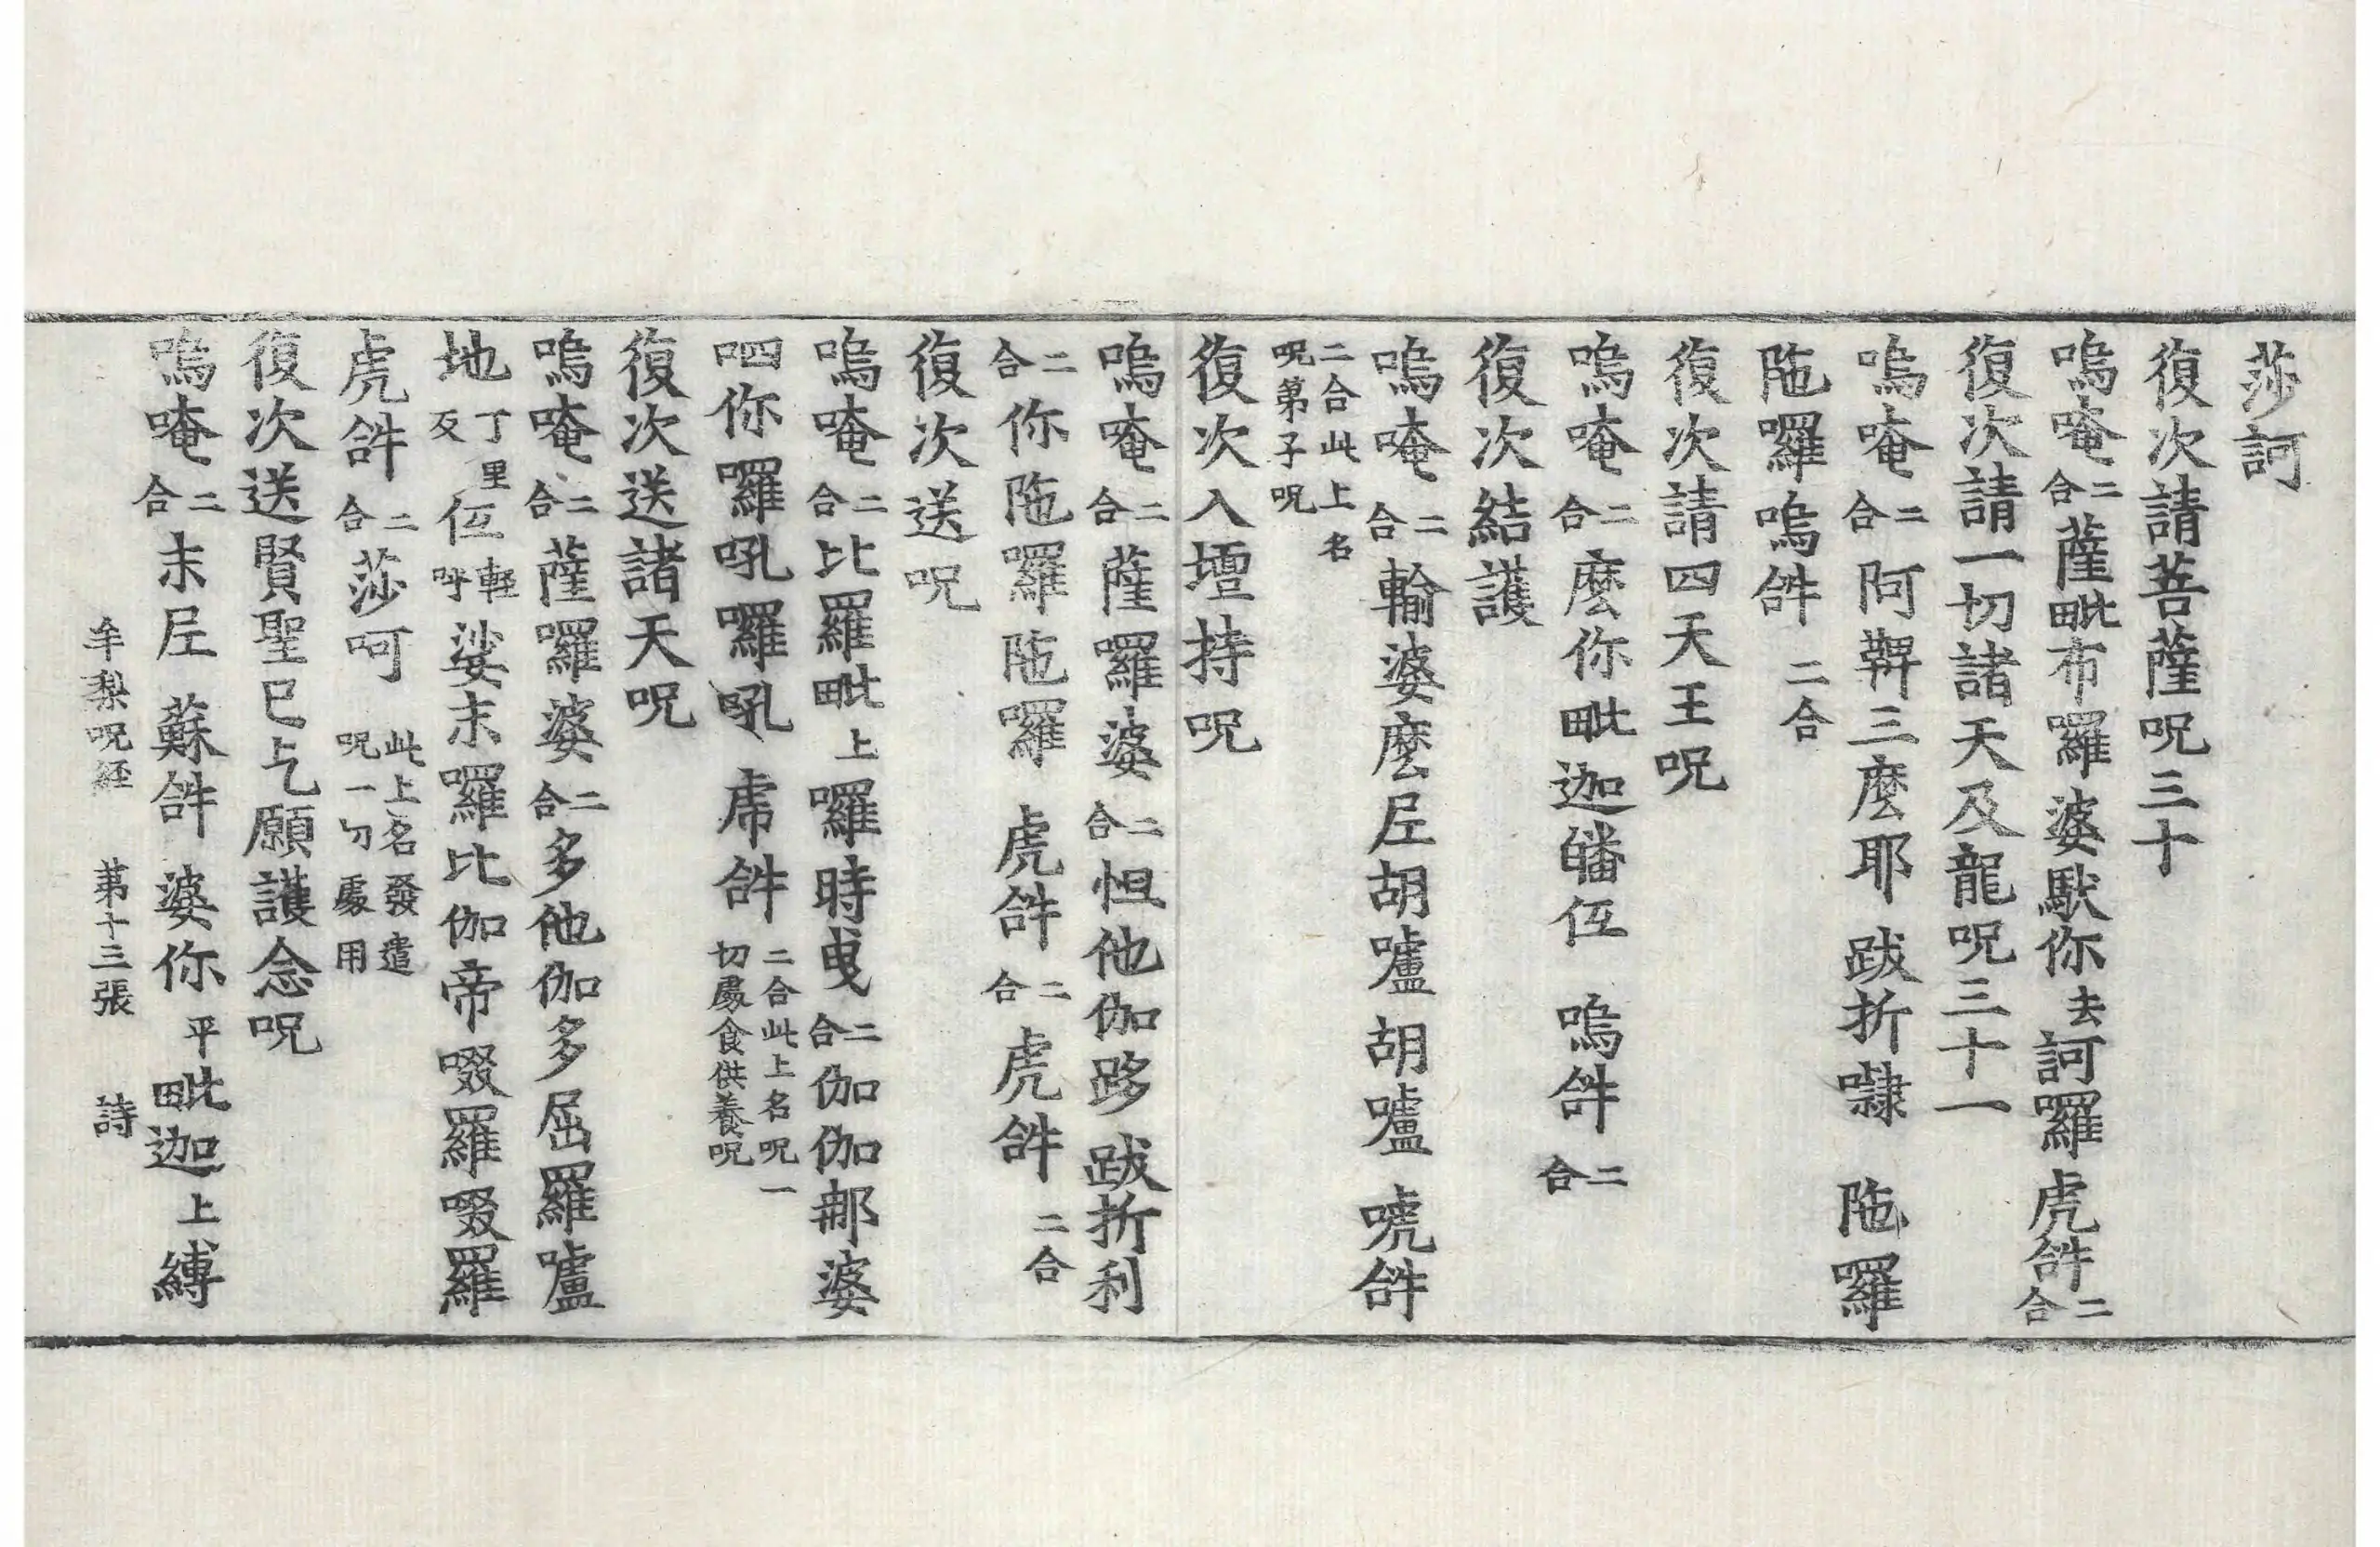 莎訶
復次請菩薩呪三十
嗚唵二合薩毗布羅婆馱你去訶羅虎𤙖二合
復次請一切諸天及龍呪三十一
嗚唵二合阿鞞三麼耶跋折㘑陁羅
陁羅嗚𤙖二合
復次請四天王呪
嗚唵二合麼你毗迦皤伍嗚𤙖二合
復次結護
嗚唵二合輸婆麼𡰱胡嚧胡嚧唬𤙖
二合此上名呪弟子呪
復次入壇持呪
嗚唵二合薩囉婆二合怛他伽跢跋折利
二合你陁羅陁羅虎𤙖二合虎𤙖二合
復次送呪
嗚唵二合比羅毗上囉時曳二合伽伽郍婆
呬你囉吼囉吼虎𤙖二合此上名呪一切處食供養呪
復次送諸天呪
嗚唵二合薩囉婆二合多他伽多屈羅嚧
地丁里反伍輕呼娑末羅比伽帝啜羅啜羅
虎𤙖二合莎呵此上名發遣呪一切處用
復次送賢聖已乞願護念呪
嗚唵二合末𡰱蘇𤙖婆你平毗迦上縛
牟梨呪経　第十三張　詩